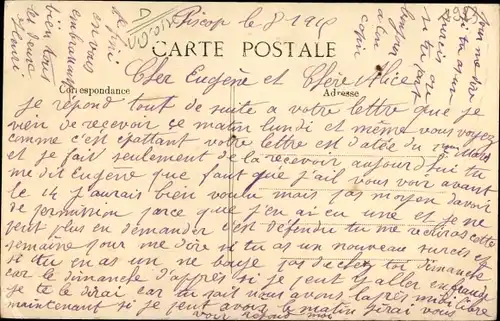 Piscop le 8
CARTE POSTALE
Correspondance
Adresse
Cher Eugène et Chère Alice
je répond tout de suite a votre lettre que je
vien de recevoir ce matin lundi et même vous voyez
comme c'est épattant votre lettre est datée du 1er Mars
et je fait seulement de la recevoir aujourd'hui tu
me dit Eugène que faut que j'ail vous voir avant
le 14 j'aurais bien voulu mais pas moyen d'avoir
de permission parce que j'en ai eu une et je ne
peut plus en demander c'est défendu tu me
semaine pour me dire si tu as un nouveau sursis
si tu en as un ne baye pas de chez toi dimanche
car le dimanche d'après si je peut y aller en fraude
je te le dirai car tu sait nous avons l'après midi libre
maintenant si je peut avoir le matin j'irai vous
voir répond moi
si tu a un
sursis ou
bonjour
a un
copin
je fini
en vous
embrassant
bien tout
les deux
Henri